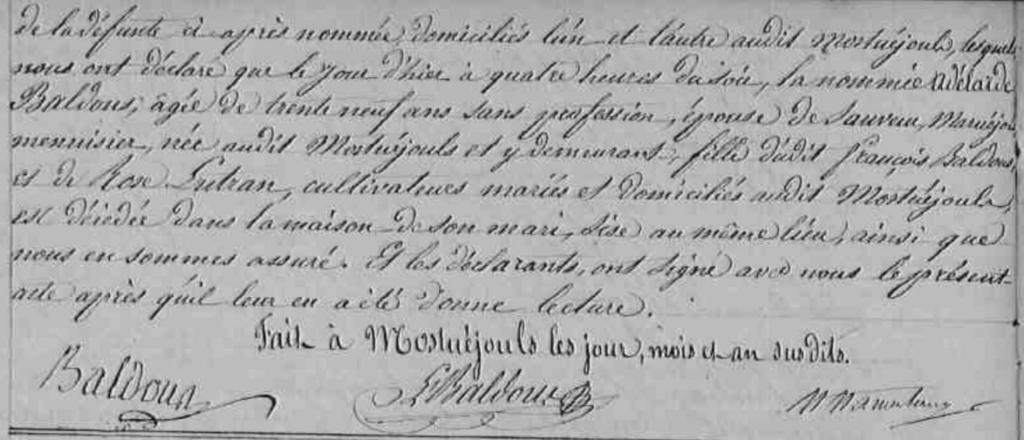 de la défunte ci après nommée domiciliés l'un et l'autre audit Mostuéjouls, lesquels
nous ont déclaré que le jour d'hier à quatre heures du soir, la nommée Adélaïde
Baldous, âgée de trente neuf ans sans profession, épouse de Sauveur, Maruéjou
mennisier, née audit Mostuéjouls et y demeurant, fille dudit françois Baldous,
et de Rose Lutran, cultivateurs mariés et domiciliés audit Mostuéjouls,
est décédée dans la maison de son mari, sise au même lieu, ainsi que
nous en sommes assuré. Et les déclarants, ont signé avec nous le présent
acte après qu'il leur en a été donné lecture.
Fait à Mostuéjouls les jour, mois et an susdits.
Baldous Baldous